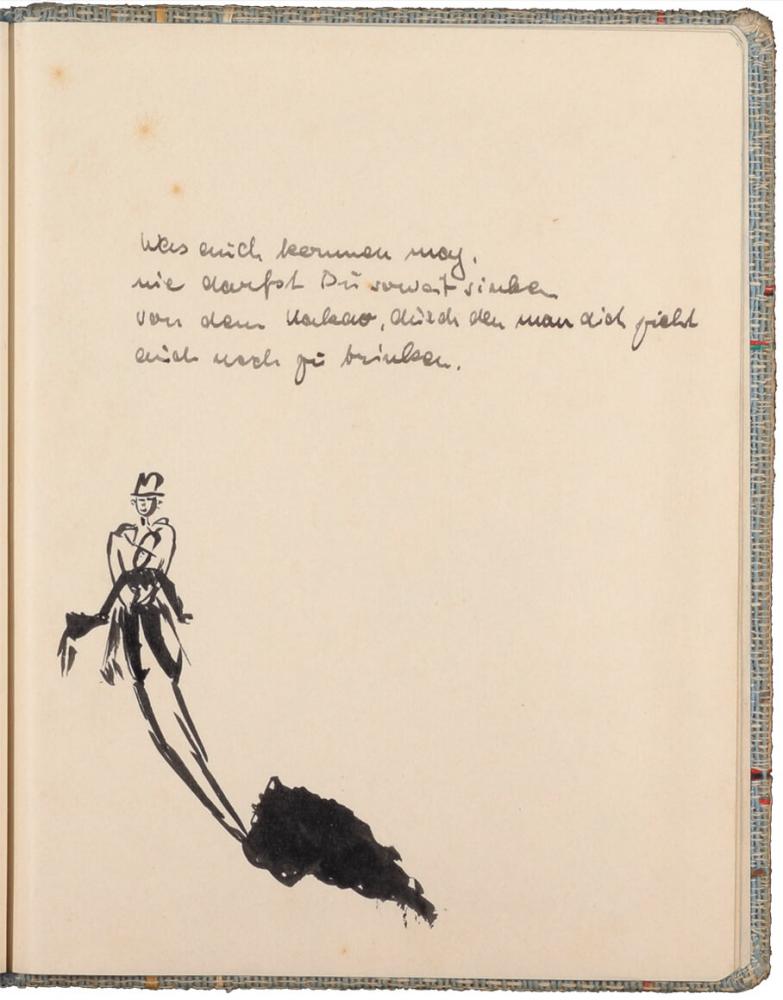 Was auch kommen mag,
nie darfst Du soweit sinken
von dem Kakao, durch den man dich zieht
auch noch zu trinken.